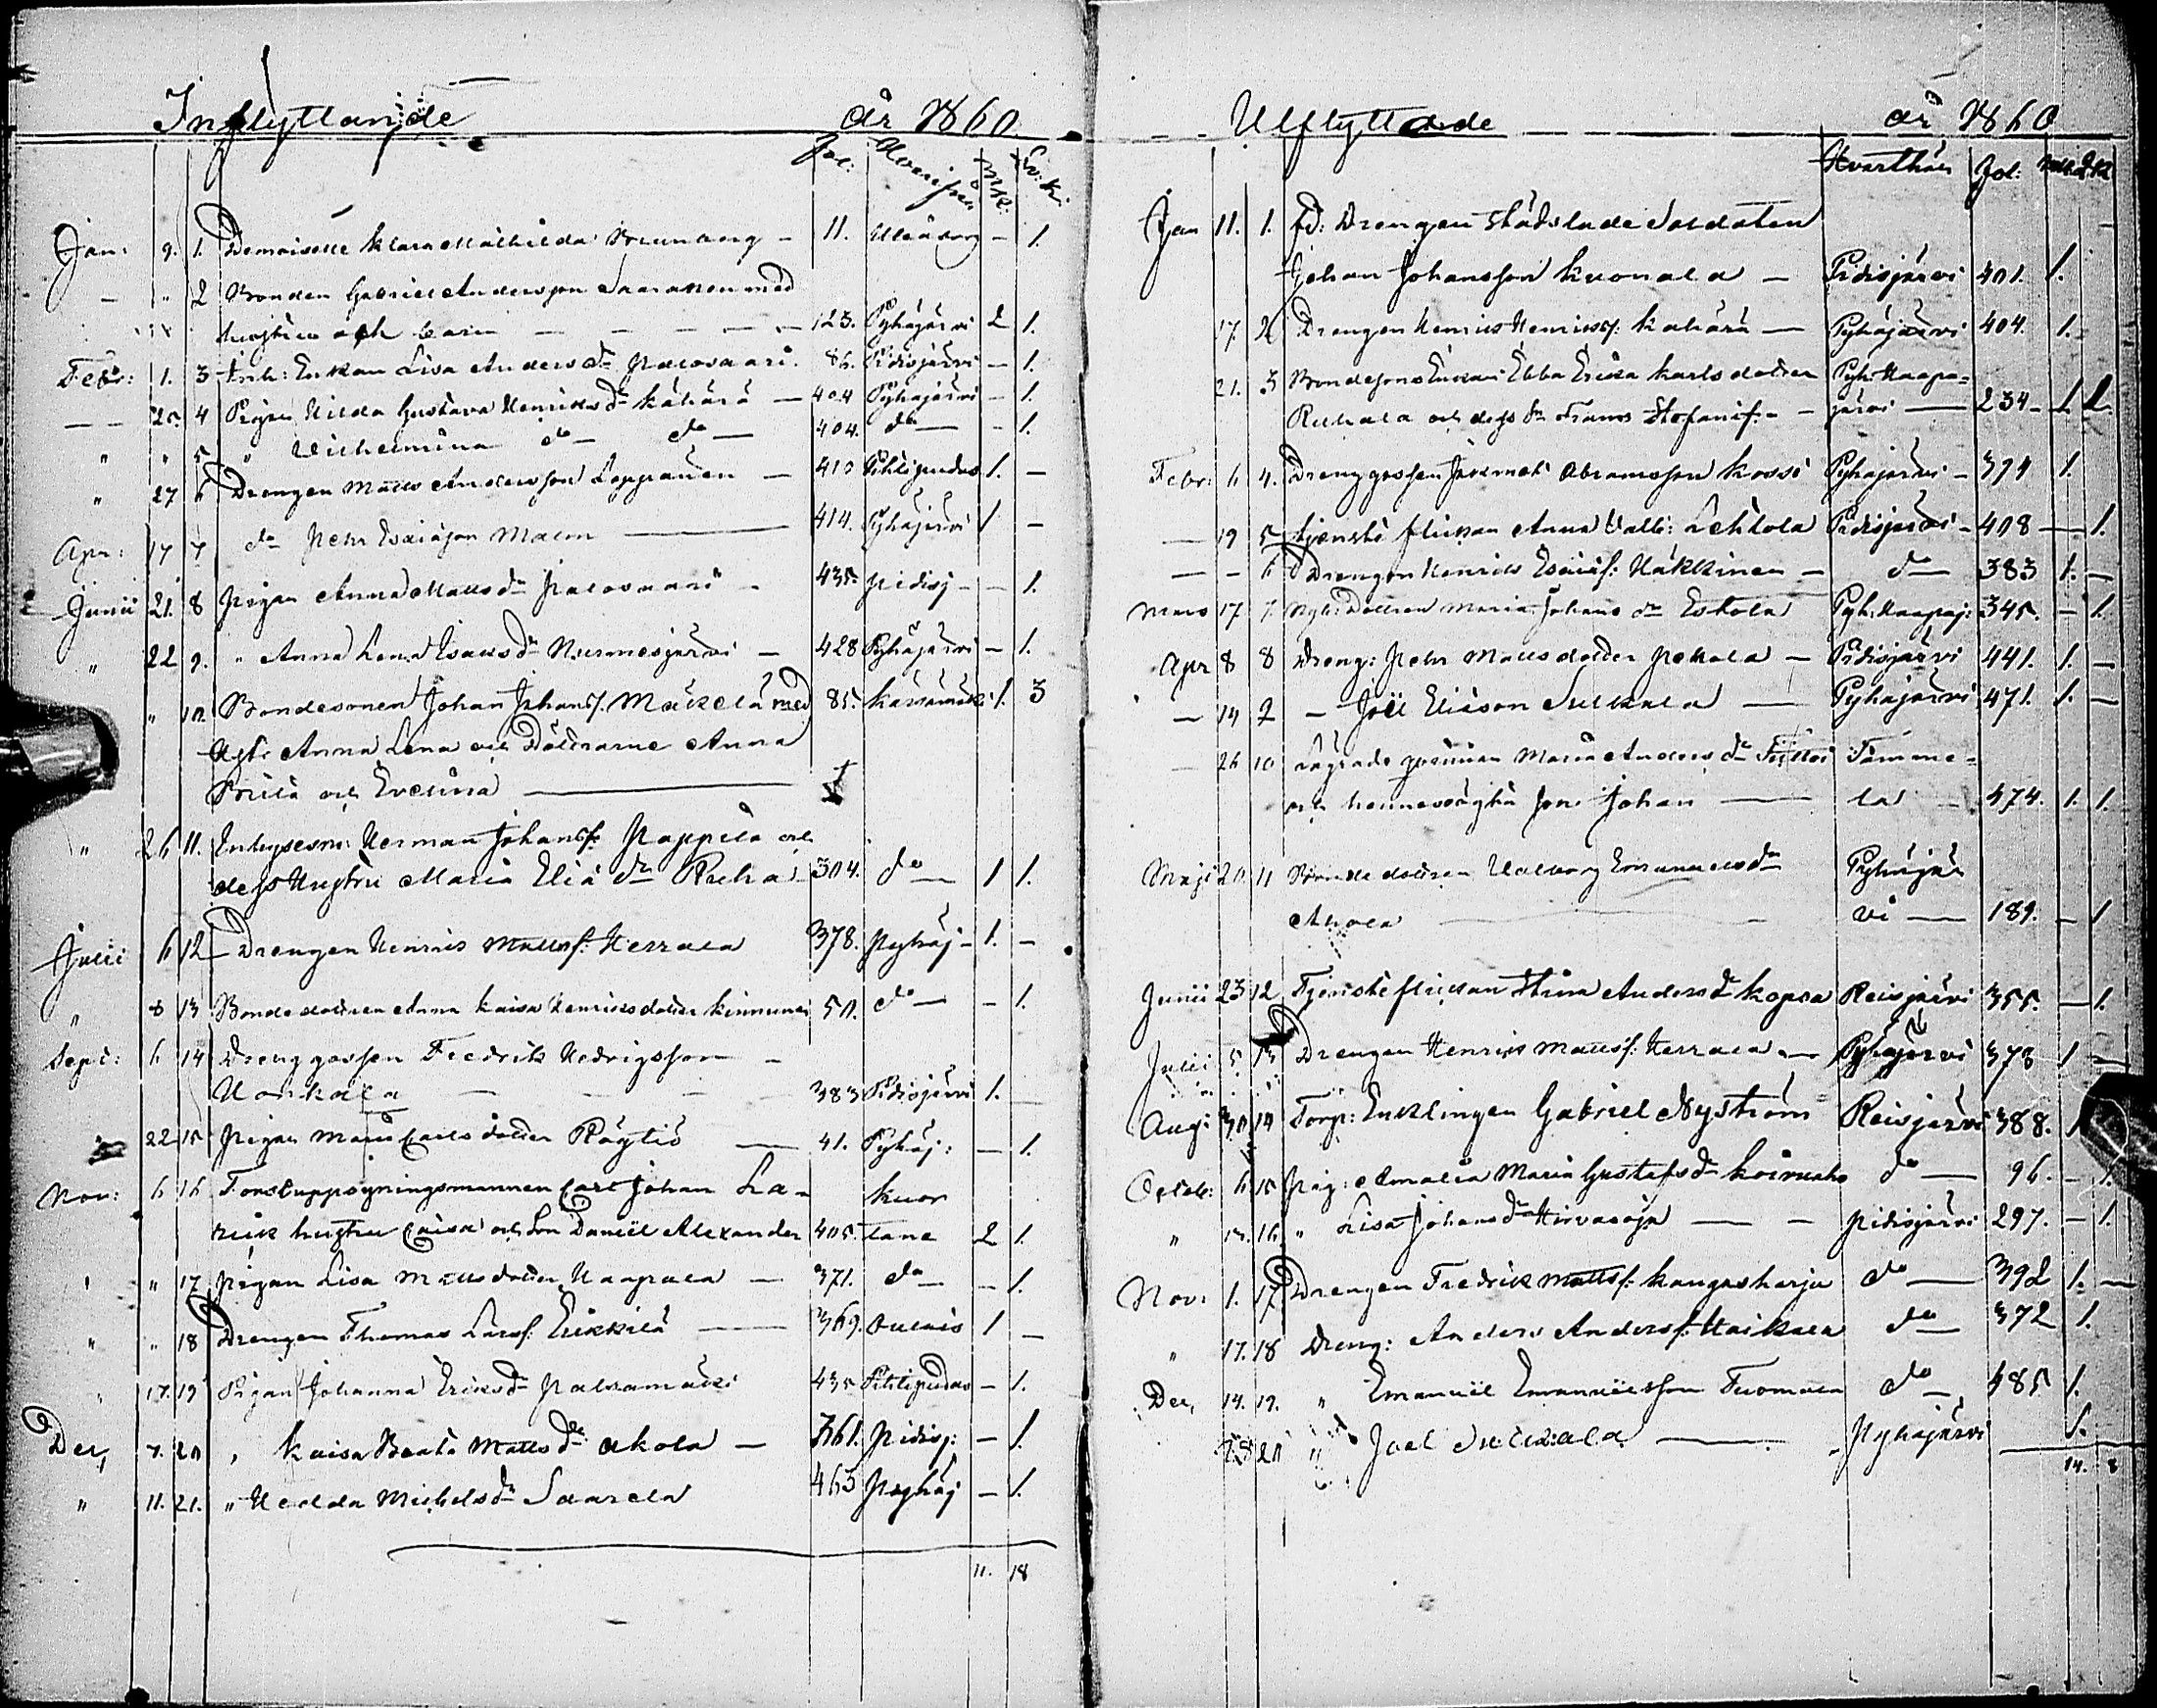 Inflyttande år 1860
Fol: Hvarifrån M.K: Qv:K:
Jan: 9. 1. Demoiselle Klara Mathilda - 11. Uleåborg - 1.
- " 2 Bonden Gabriel Andersson Saaranen med
hustru och barn - - - - 123. Pyhäjärvi 2 1.
Febr: 1. 3 Inh: Enkan Lisa Anders dr Palosaari. 86. Pidisjärvi - 1.
- - 25. 4 Pigan Hilda Gustava Henriks dr Kähärä - 404 Pyhäjärvi - 1.
" " 5 " Vilhelmina do - do - 404. do - - 1.
" 27 6 Drengen Matts Andersson Leppänen - 410 Pihtipudas 1. -
Apr: 17 7 do Pehr Esaiasson Malm - 414. Pyhäjärvi 1 -
Junii 21. 8 Pigan Anna Matts dr Palosaari - 435. Pidisj - - 1.
" 22 9. " Anna Lena Esaias dr Nurmesjärvi - 428 Pyhäjärvi - 1.
" 10. Bondesonen Johan Johanss. Mäkelä med 85. Kärsämäki 1. 3
Hust. Anna Lena och Döttrarne Anna
Brita och Evelina -
" 26 11. Inhysesm: Herman Johanss. Pappila och
dess Hustru Maria Elia dr Puha 304. do - 1 1.
Julii 6 12 Drengen Henrik Mattss: Herrala 378. Pyhäj - 1. -
" 8 13 Bondedottren Anna Kaisa Henriksdotter Kinnunen 50. do - - 1.
Sept: 6 14 Drenggossen Fredrik Hedrigsson -
Honkala - - - 383 Pidisjärvi 1. -
22 15 Pigan Maria Carlsdotter Räytiö - 41. Pyhäj: - 1.
Nov: 6 16 Forstuppsyningsmannen Carl Johan La- Kuor
rick hustru Caisa och Son Daniel Alexander 405. tane 2 1.
" " 17 Pigan Lisa Mattsdotter Haapala - 371. do - - 1.
" " 18 Drengen Thomas Larss: Erikkilä - 369. Oulais 1 -
" 17. 19 Pigan Johanna Eriks dr Palvamäki 435 Pihtipudas - 1.
Dec, 7. 20 " Kaisa Beata Matts dr Ahola - 361. Pidisj: - 1.
" 11. 21. " Hedda Michels dr Saarela 463 Pyhäj - 1.
11. 18
Utflyttande år 1860
Hvarthän Fol: M.K Q.K
Jan 11. 1. Fd: Drengen städslade Soldaten
Johan Johansson Kuonala - Pidisjärvi 401. 1.
17. 2 Drengen Henrik Henrikss: Kähärä - Pyhäjärvi 404. 1. -
21. 3 Bondesons Enkan Ebba Erica Karlsdotter Pyh: Haapa=
Ruhala och dess Sn Frans Stefanif. - järvi - 234 - 1 1
Febr: 6 4. Drenggossen Jeremias Abramsson Kossi Pyhäjärvi - 394 1.
- 19 5 tjenste flickan Anna Valb: Lehtola Pidisjärvi - 408 - 1.
- - 6 Drengen Henrik Esaiss: Häkkinen - do - 383 1. -
Mars 17 7. Nyb: Dottren Maria Johans dr Eskola Pyh: Haapaj: 345. - 1.
Apr 8 8 Dreng: Pehr Mattsdotter Pekala - Pidisjärvi 441. 1. -
- 14 9 - Joel Eliason Sulkala - Pyhäjärvi 471. 1. -
- 26 10 Lägrade qvinnan Maria Anders dr Tamme=
och hennes oägta son Johan - la 474. 1. 1.
Maji 20. 11 Bonde dottren Valborg Emanuels dr Pyhäjär
Ahola - vi - 189. - 1
Junii 23 12 Tjenste flickan Stina Anders dr Kopsa Reisjärvi 355. - 1.
Julii 5 13 Drengen Henrik Mattss: Herrala - Pyhäjärvi 378 1 -
Aug: 30 14 Torp: Enklingen Gabriel Nyström Reisjärvi 388. 1
Octob: 6 15 Pig: Amalia Maria Gustafs dr Koivuaho do - 96. - 1.
" 13. 16. " Lisa Johans dr Hirvasoja - - Pidisjärvi 297. - 1.
Nov: 1. 17 Drengen Fredrik Mattss: Kangasharju do - 392 1. -
" 17. 18 Dreng: Anders Anderss: Haikala do - 372 1.
Dec, 14. 19. " Emanuel Emanuelsson Tuomala do - 485 1.
28 20 " Joel Sulkala - Pyhäjärvi 1.
14. 8